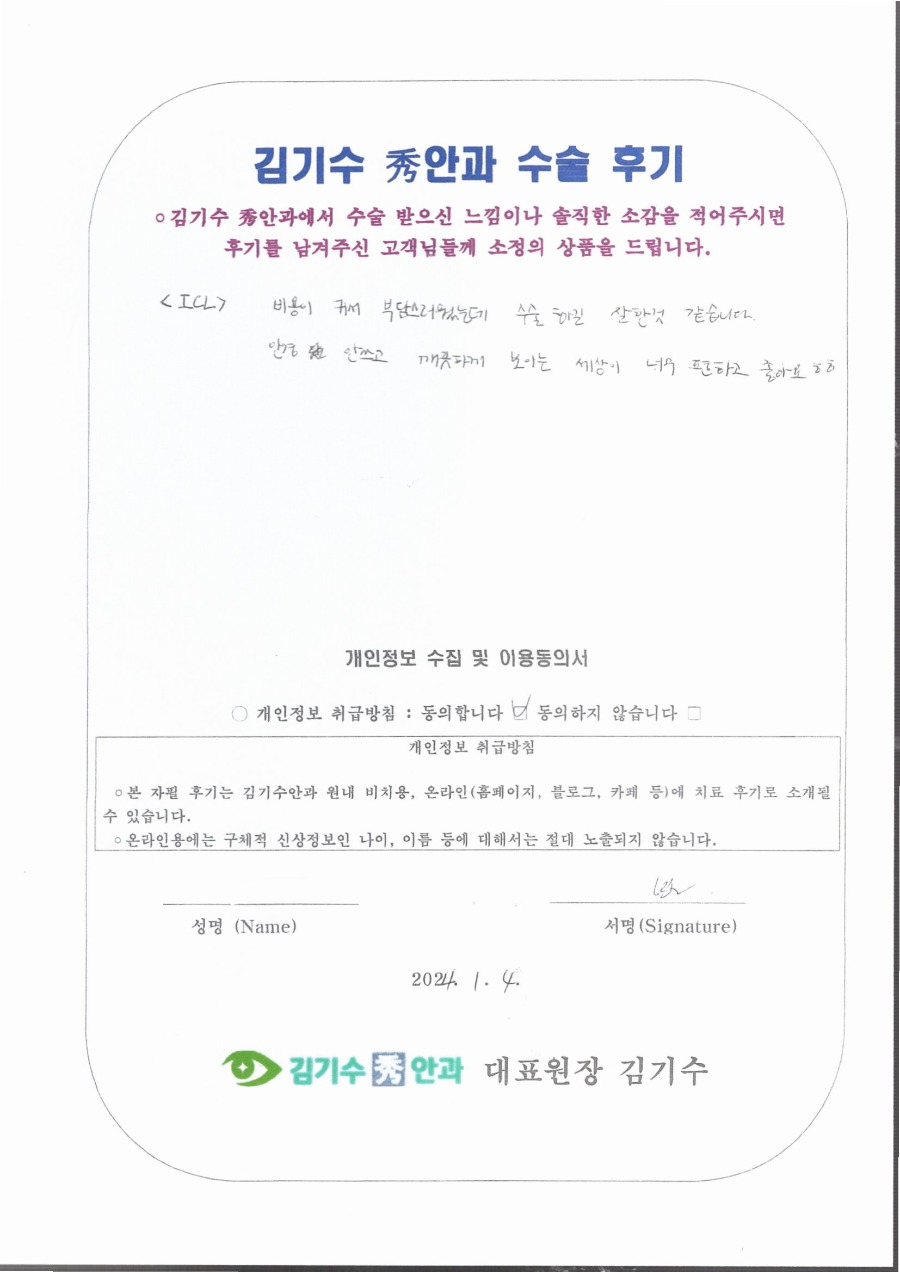 김기수 秀안과 수술 후기
○김기수 秀안과에서 수술 받으신 느낌이나 솔직한 소감을 적어주시면
후기를 남겨주신 고객님들께 소정의 상품을 드립니다.
<ICL> 비용이 커서 부담스러웠는데 수술 하길 잘한것 같습니다.
안경 안쓰고 깨끗하게 보이는 세상이 너무 편하고 좋아요 ㅎㅎ
개인정보 수집 및 이용동의서
○ 개인정보 취급방침 : 동의합니다 ☑ 동의하지 않습니다 □
개인정보 취급방침
○본 자필 후기는 김기수안과 원내 비치용, 온라인(홈페이지, 블로그, 카페 등)에 치료 후기로 소개될
수 있습니다.
○온라인용에는 구체적 신상정보인 나이, 이름 등에 대해서는 절대 노출되지 않습니다.
성명 (Name) 서명(Signature)
2024. 1. 4.
김기수 秀 안과 대표원장 김기수